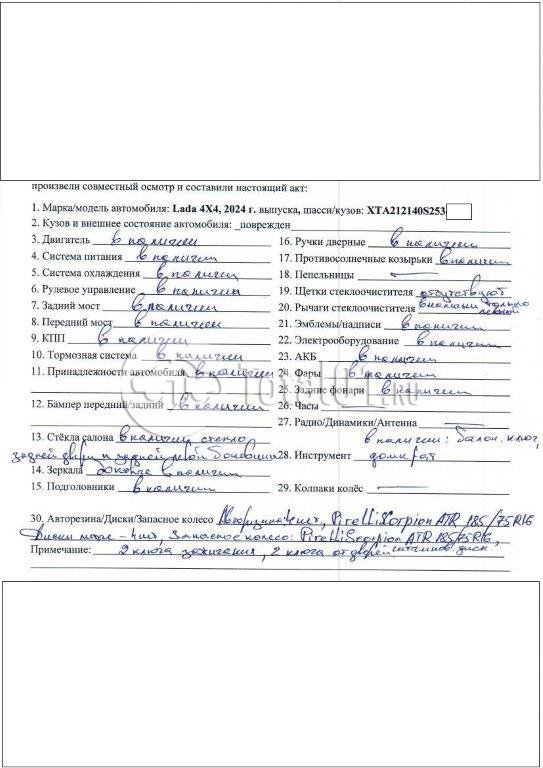 произвели совместный осмотр и составили настоящий акт:
1. Марка/модель автомобиля: Lada 4X4, 2024 г. выпуска, шасси/кузов: XTA212140S253
2. Кузов и внешнее состояние автомобиля: _поврежден
3. Двигатель в наличии
4. Система питания в наличии
5. Система охлаждения в наличии
6. Рулевое управление в наличии
7. Задний мост в наличии
8. Передний мост в наличии
9. КПП в наличии
10. Тормозная система в наличии
11. Принадлежности автомобиля в наличии
12. Бампер передний/задний в наличии
13. Стёкла салона в наличии, стекло
задней двери и задней левой боковины
14. Зеркала боковые в наличии
15. Подголовники в наличии
16. Ручки дверные в наличии
17. Противосолнечные козырьки в наличии
18. Пепельницы —
19. Щетки стеклоочистителя отсутствуют
20. Рычаги стеклоочистителя в наличии только
21. Эмблемы/надписи в наличии
22. Электрооборудование в наличии
23. АКБ в наличии
24. Фары в наличии
25. Задние фонари в наличии
26. Часы —
27. Радио/Динамики/Антенна —
в наличии: балон. ключ,
28. Инструмент домкрат
29. Колпаки колёс —
30. Авторезина/Диски/Запасное колесо Авторезина 4 шт, Pirelli Scorpion ATR 185/75R16
Диски литые - 4 шт, Запасное колесо: Pirelli Scorpion ATR 185/75R16,
штампов. диск
Примечание: 2 ключа зажигания, 2 ключа от дверей
TOTAL01.RU